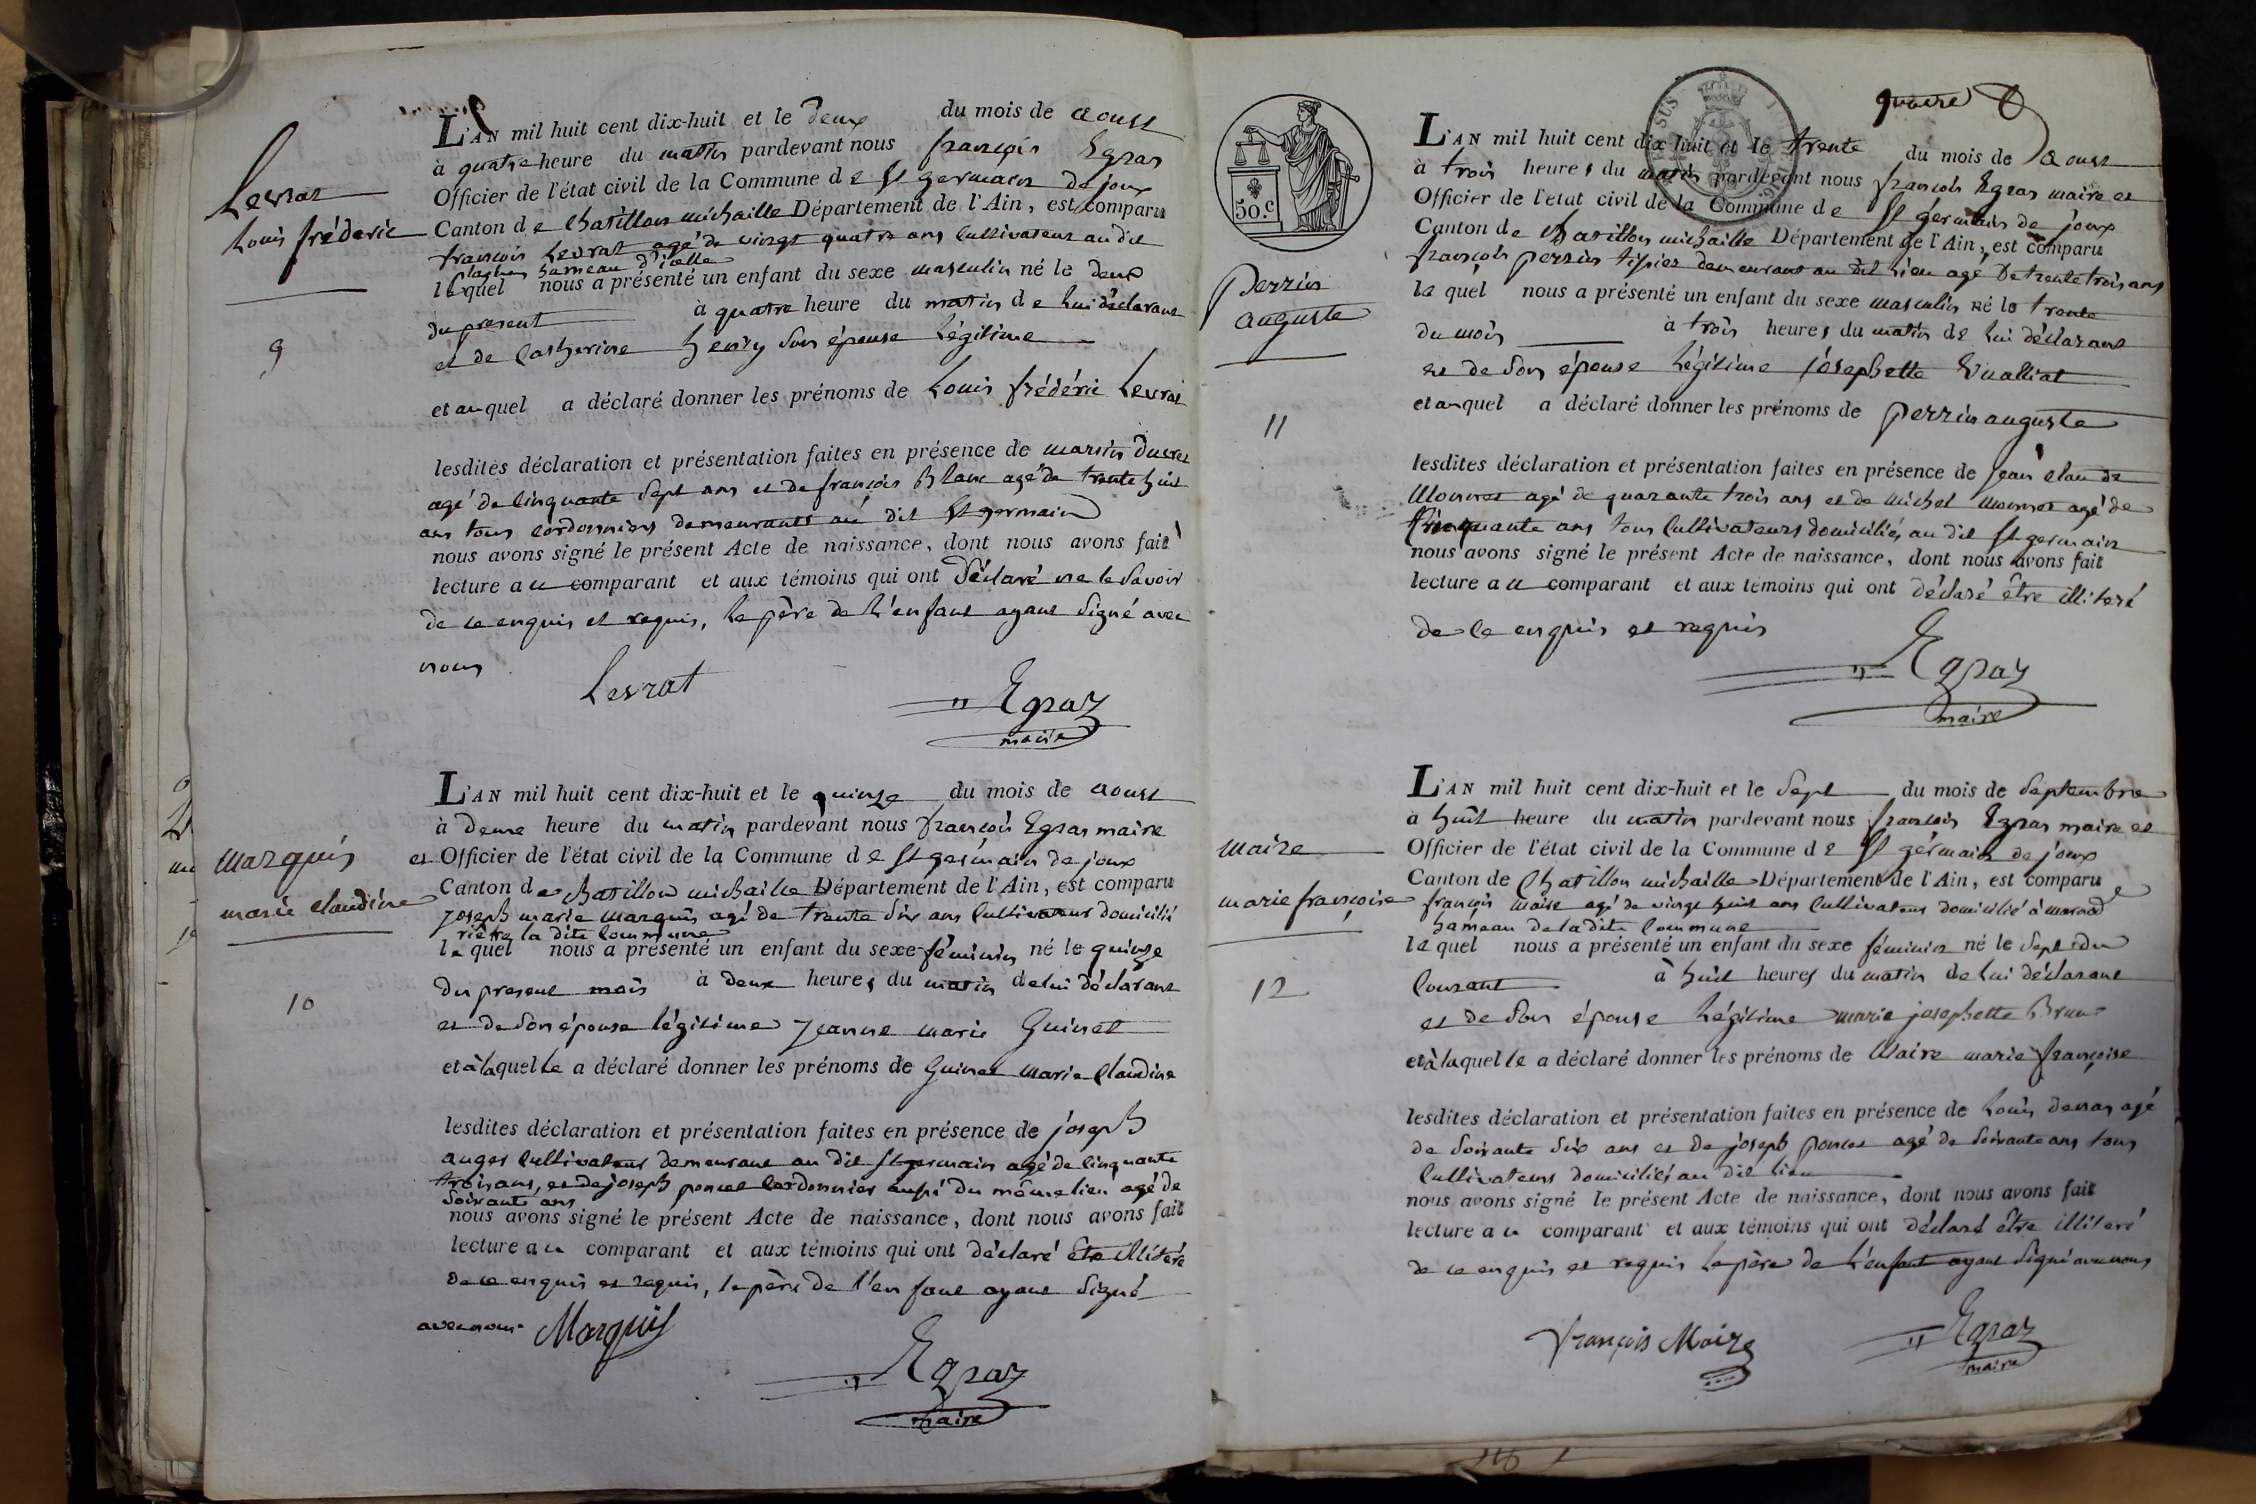 Levrat
Louis frédéric
9
L'AN mil huit cent dix-huit et le deux du mois de aoust
à quatre heure du matin pardevant nous françois Egraz
Officier de l'état civil de la Commune de St germain de joux
Canton de Chatillon michaille Département de l'Ain, est comparu
françois Levrat agé de vingt quatre ans Cultivateur au dit
hameau d'icelle
lequel nous a présenté un enfant du sexe masculin né le deux
du present à quatre heure du matin de lui déclarant
et de Catherine henry son épouse légitime
et auquel a déclaré donner les prénoms de Louis frédéric Levrat
lesdites déclaration et présentation faites en présence de martin ducret
agé de Cinquante Sept ans et de françois Blanc agé de trente huit
ans tous Cordonniers demeurants au dit St germain
nous avons signé le présent Acte de naissance, dont nous avons fait
lecture au comparant et aux témoins qui ont déclaré ne le Savoir
de ce enquis et requis, le père de l'enfant ayant signé avec
nous
Levrat
Egraz
maire
marquis
marie claudine
10
L'AN mil huit cent dix-huit et le quinze du mois de aoust
à deux heure du matin pardevant nous françois Egraz maire
et Officier de l'état civil de la Commune de St germain de joux
Canton de Chatillon michaille Département de l'Ain, est comparu
joseph marie marquis agé de trente Six ans Cultivateur domicilié
rière la dite Commune
lequel nous a présenté un enfant du sexe féminin né le quinze
du present mois à deux heures du matin de lui déclarant
et de Son épouse légitime jeanne marie Guinet
et à laquelle a déclaré donner les prénoms de Guinet marie Claudine
lesdites déclaration et présentation faites en présence de joseph
anger Cultivateur demeurant au dit St germain agé de Cinquante
trois ans, et de joseph poncet Cordonnier aussi du même lieu agé de
Soixante ans
nous avons signé le présent Acte de naissance, dont nous avons fait
lecture au comparant et aux témoins qui ont déclaré être illiteré
de ce enquis et requis, le père de l'enfant ayant Signé
avec nous Marquis
Egraz
maire
50.c
perrin
auguste
11
L'AN mil huit cent dix-huit et le trente du mois de aoust
à trois heures du matin pardevant nous françois Egraz maire et
Officier de l'état civil de la Commune de St germain de joux
Canton de Chatillon michaille Département de l'Ain, est comparu
françois perrin tissier demeurant au dit lieu agé de trente trois ans
lequel nous a présenté un enfant du sexe masculin né le trente
du mois à trois heures du matin de lui déclarant
et de Son épouse légitime josephette Evalliat
et auquel a déclaré donner les prénoms de perrin auguste
lesdites déclaration et présentation faites en présence de jean claude
Monnet agé de quarante trois ans et de michel monnet agé de
Cinquante ans tous Cultivateurs domiciliés au dit St germain
nous avons signé le présent Acte de naissance, dont nous avons fait
lecture au comparant et aux témoins qui ont déclaré être illiteré
de ce enquis et requis
Egraz
maire
maire
marie françoise
12
L'AN mil huit cent dix-huit et le Sept du mois de Septembre
à huit heure du matin pardevant nous françois Egraz maire et
Officier de l'état civil de la Commune de St germain de joux
Canton de Chatillon michaille Département de l'Ain, est comparu
françois maire agé de vingt huit ans Cultivateur domicilié à marnod
hameau de la dite Commune
lequel nous a présenté un enfant du sexe féminin né le Sept du
Courant à huit heures du matin de lui déclarant
et de Son épouse légitime marie josephette Brun
et à laquelle a déclaré donner les prénoms de Maire marie françoise
lesdites déclaration et présentation faites en présence de Louis agé
de Soixante Six ans et de joseph poncet agé de Soixante ans tous
Cultivateurs domiciliés au dit lieu
nous avons signé le présent Acte de naissance, dont nous avons fait
lecture au comparant et aux témoins qui ont déclaré être illiteré
de ce enquis et requis le père de l'enfant ayant Signé avec nous
françois Maire
Egraz
maire